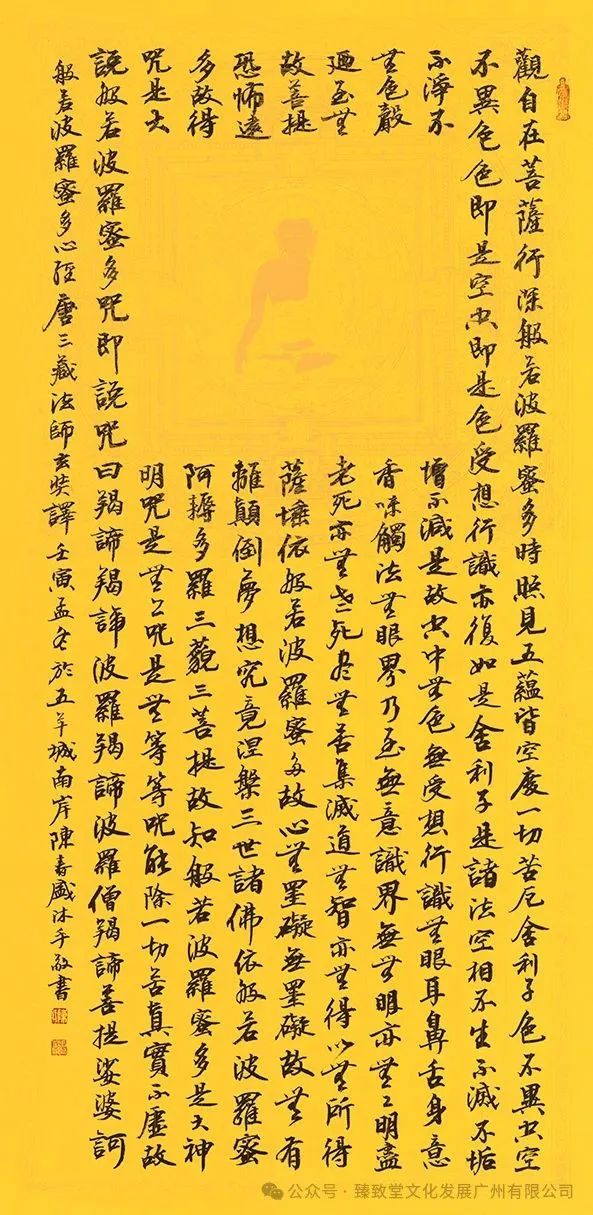 觀自在菩薩行深般若波羅蜜多時照見五蘊皆空度一切苦厄舍利子色不異空空
不異色色即是空空即是色受想行識亦復如是舍利子是諸法空相不生不滅不垢
不淨不增不減是故空中無色無受想行識無眼耳鼻舌身意
無色聲香味觸法無眼界乃至無意識界無無明亦無無明盡
廼至無老死亦無老死盡無苦集滅道無智亦無得以無所得
故菩提薩埵依般若波羅蜜多故心無罣礙無罣礙故無有
恐怖遠離顛倒夢想究竟涅槃三世諸佛依般若波羅蜜
多故得阿耨多羅三藐三菩提故知般若波羅蜜多是大神
咒是大明咒是無上咒是無等等咒能除一切苦真實不虛故
說般若波羅蜜多咒即說咒曰羯諦羯諦波羅羯諦波羅僧羯諦菩提娑婆訶
般若波羅蜜多心經唐三藏法師玄奘譯壬寅孟冬於五羊城南岸陳春盛沐手敬書
公众号·臻致堂文化发展广州有限公司